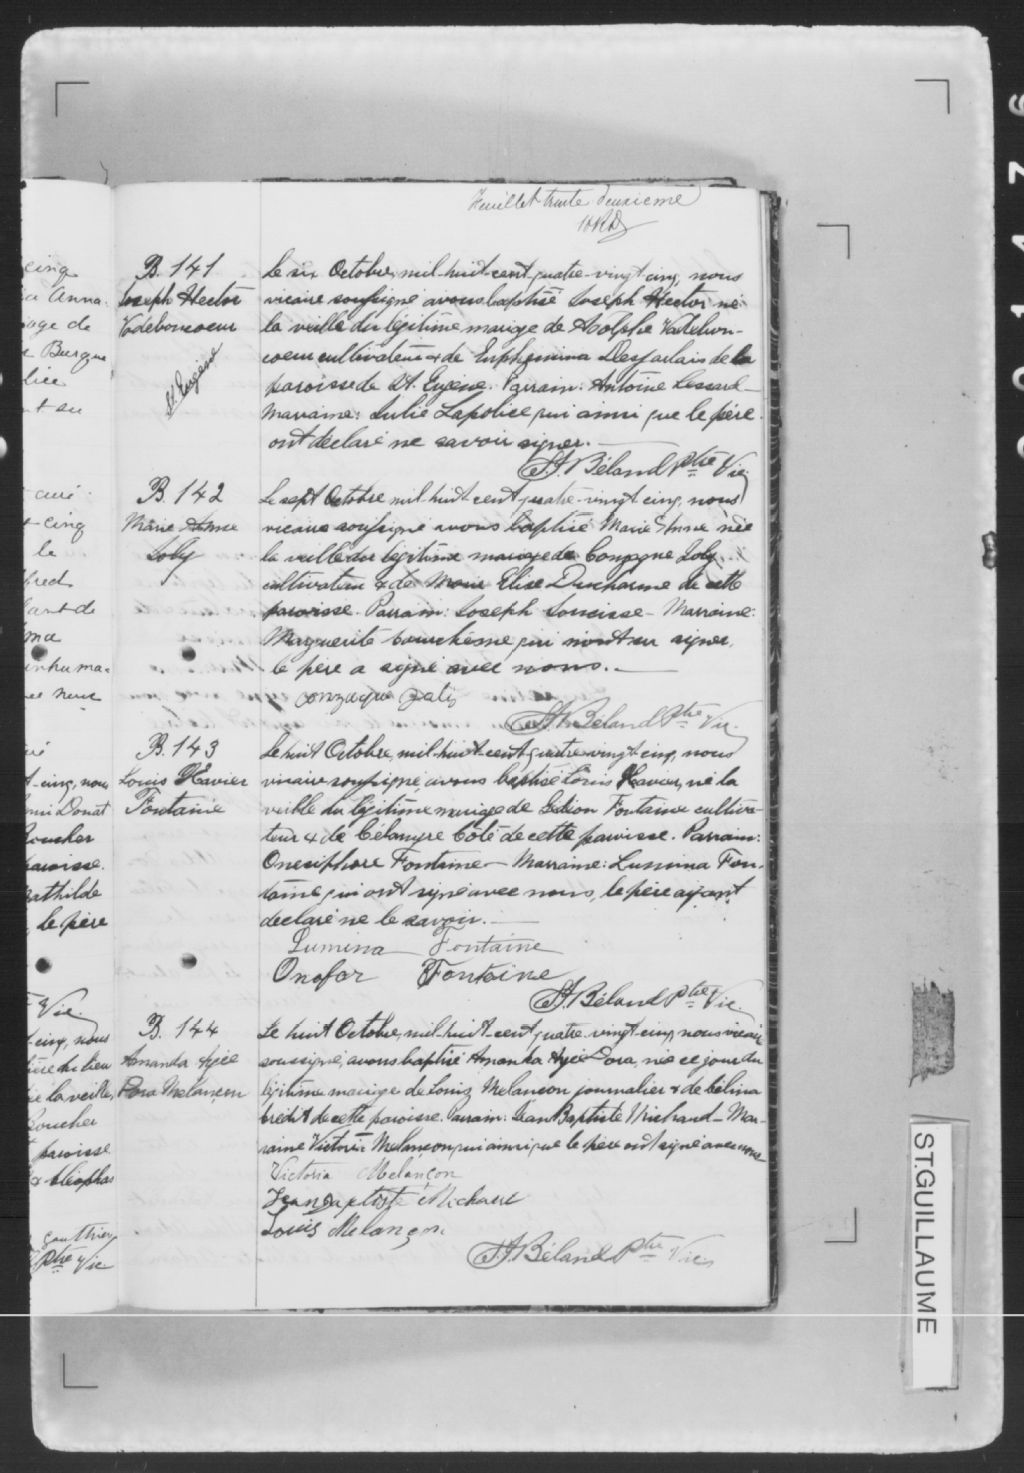 Feuillet trente deuxième
B. 141
Joseph Hector
Vadeboncoeur
St Eugène
Le six Octobre, mil-huit-cent-quatre-vingt-cinq, nous
vicaire soussigné avons baptisé Joseph Hector né
la veille du légitime mariage de Adolphe Vadebon-
coeur cultivateur & de Euphémina Desjarlais de la
paroisse de St. Eugène. Parrain: Antoine Lessard
Marraine: Julie Lapolice qui ainsi que le père
ont déclaré ne savoir signer.
St. Béland Ptre Vic.
B. 142
Marie Anna
Joly
Le sept Octobre mil-huit-cent-quatre-vingt-cinq, nous
vicaire soussigné avons baptisé Marie Anna née
la veille du légitime mariage de Gonzague Joly
cultivateur & de Marie Elise Ducharme de cette
paroisse. Parrain: Joseph - Marraine:
Marguerite qui n'ont su signer,
le père a signé avec nous.
Gonzague Joly
St. Béland Ptre Vic.
B. 143
Louis Xavier
Fontaine
Le huit Octobre, mil-huit-cent-quatre-vingt-cinq, nous
vicaire soussigné, avons baptisé Louis Xavier, né la
veille du légitime mariage de Gédéon Fontaine cultiva-
teur & de Célanyre Côté de cette paroisse. Parrain:
Onésiphore Fontaine - Marraine: Lumina Fon-
taine qui ont signé avec nous, le père ayant
déclaré ne le savoir.
Lumina Fontaine
Onofor Fontaine
St. Béland Ptre Vic.
B. 144
Amanda
Dora Melançon
Le huit Octobre, mil-huit-cent-quatre-vingt-cinq, nous vicaire
soussigné, avons baptisé Amanda Dora, née ce jour du
légitime mariage de Louis Melançon journalier & de Célina
de cette paroisse. Parrain: Jean Baptiste Michaud - Mar-
raine Victoria Melançon qui ainsi que le père ont signé avec nous
Victoria Melançon
Jean Baptiste Michaud
Louis Melançon
St. Béland Ptre Vic.
cinq
Anna
le
Donat
Boucher
paroisse.
Mathilde
le père
Vic.
la veille,
Boucher
paroisse
& Cléophas
Gauthier
Ptre Vic
ST.GUILLAUME